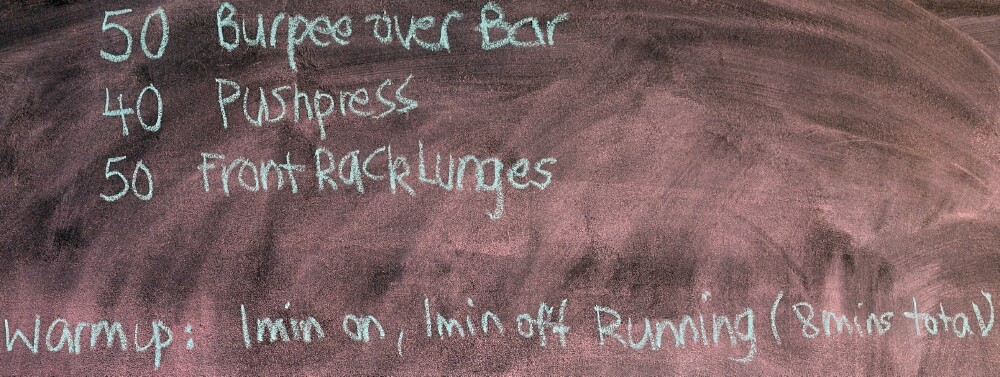 50 Burpee over Bar
40 Pushpress
50 Front Rack Lunges
Warmup: 1min on, 1min off Running (8mins total)